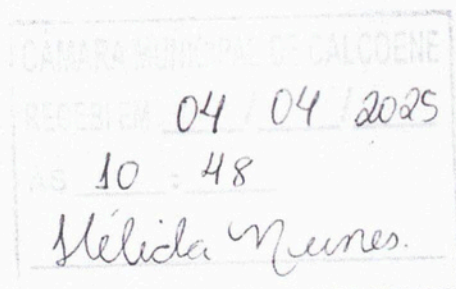 CÂMARA MUNICIPAL DE CALÇOENE
RECEBI EM 04 / 04 / 2025
AS 10 : 48
Hélida Nunes.